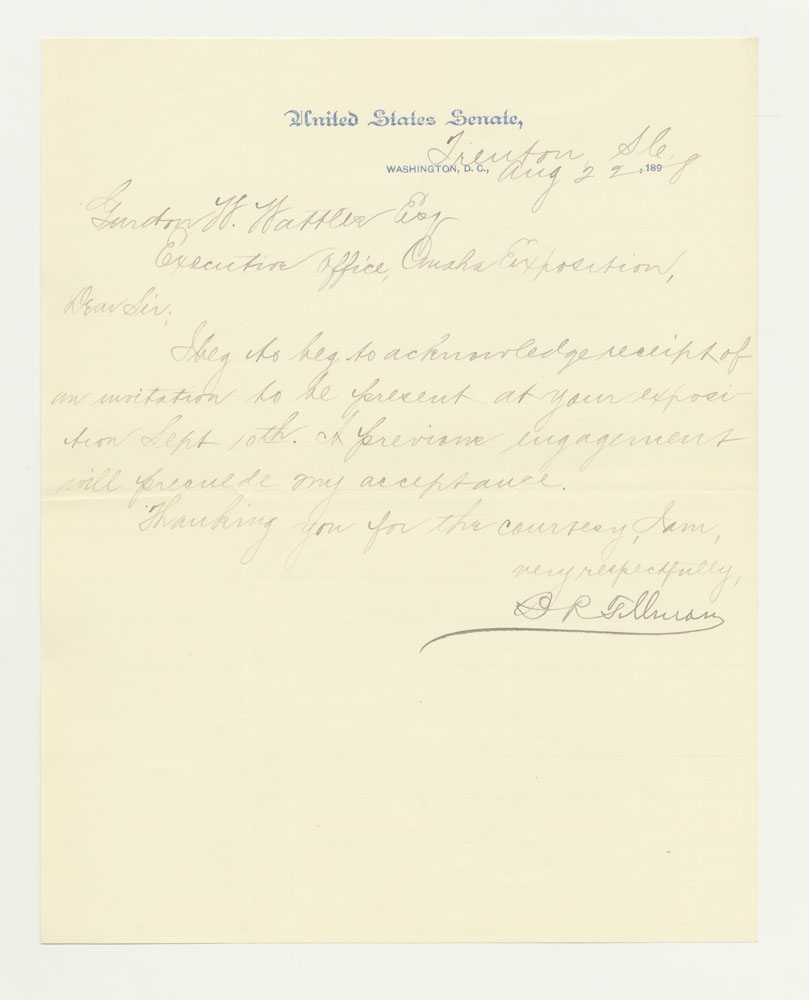 United States Senate,
Trenton, S.C.
WASHINGTON, D. C., Aug 22, 1898
Gurdon W. Wattles Esq
Executive Office, Omaha Exposition,
Dear Sir,
I beg to beg to acknowledge receipt of
an invitation to be present at your exposi-
tion Sept 10th. A previous engagement
will preculde my acceptance.
Thanking you for the courtesy, I am,
very respectfully,
B R Tillman